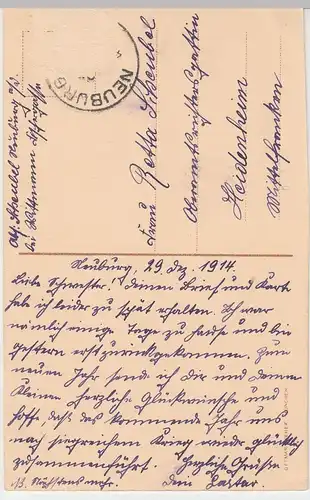 Neuburg, 29. Dez. 1914.
Liebe Schwester! Deinen Brief und Karte
habe ich leider zu spät erhalten. Ich war
nämlich einige Tage zu Hause und bin
gestern erst zurückgekommen. Zum
neuen Jahr sende ich Dir und Deinem
Kleinen herzliche Glückwünsche und
hoffe, daß das kommende Jahr uns
nach siegreichem Krieg wieder glücklich
zusammenführt. Herzliche Grüße
NB. Nächstens mehr. Dein
Frau Betta
Oberamtsrichtersgattin
Heidenheim
Mittelfranken
Neuburg a/D.
bei Wittmann
NEUBURG